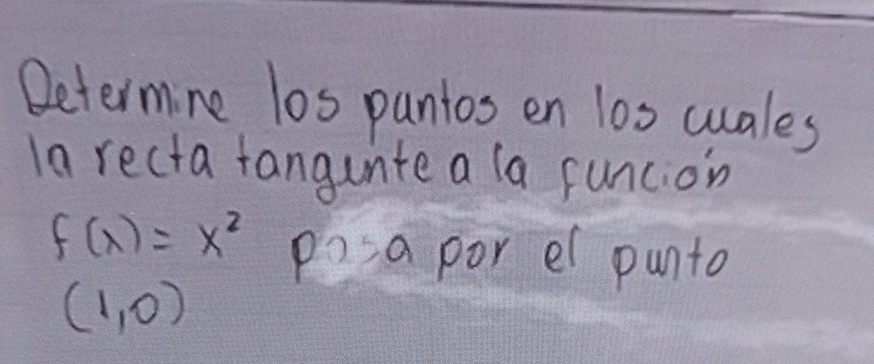 Determine los puntos en los cuales
la recta tangente a la función
f(x) = x² pasa por el punto
(1,0)